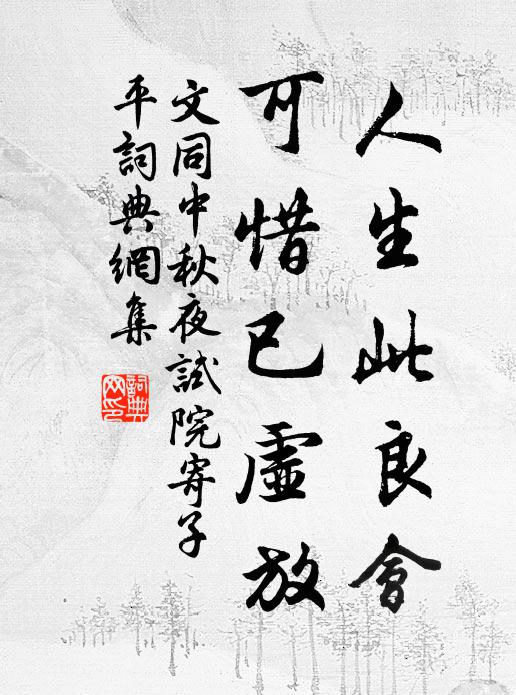 人生此良會
可惜已虛放
文同中秋夜試院寄子
平詞典網集
詞典
网印